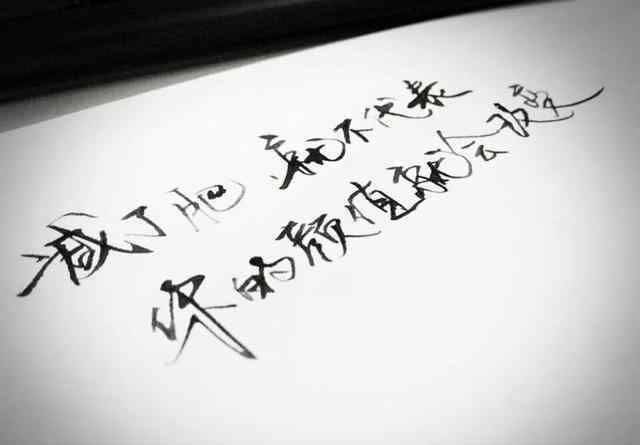 减了肥 就不代表
你的颜值就会改变